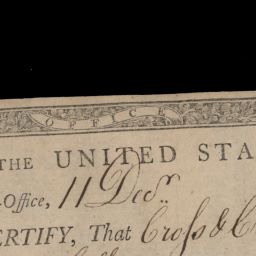 OFFICE
THE UNITED STA
-Office, 11 Decr.
ERTIFY, That Cross & C